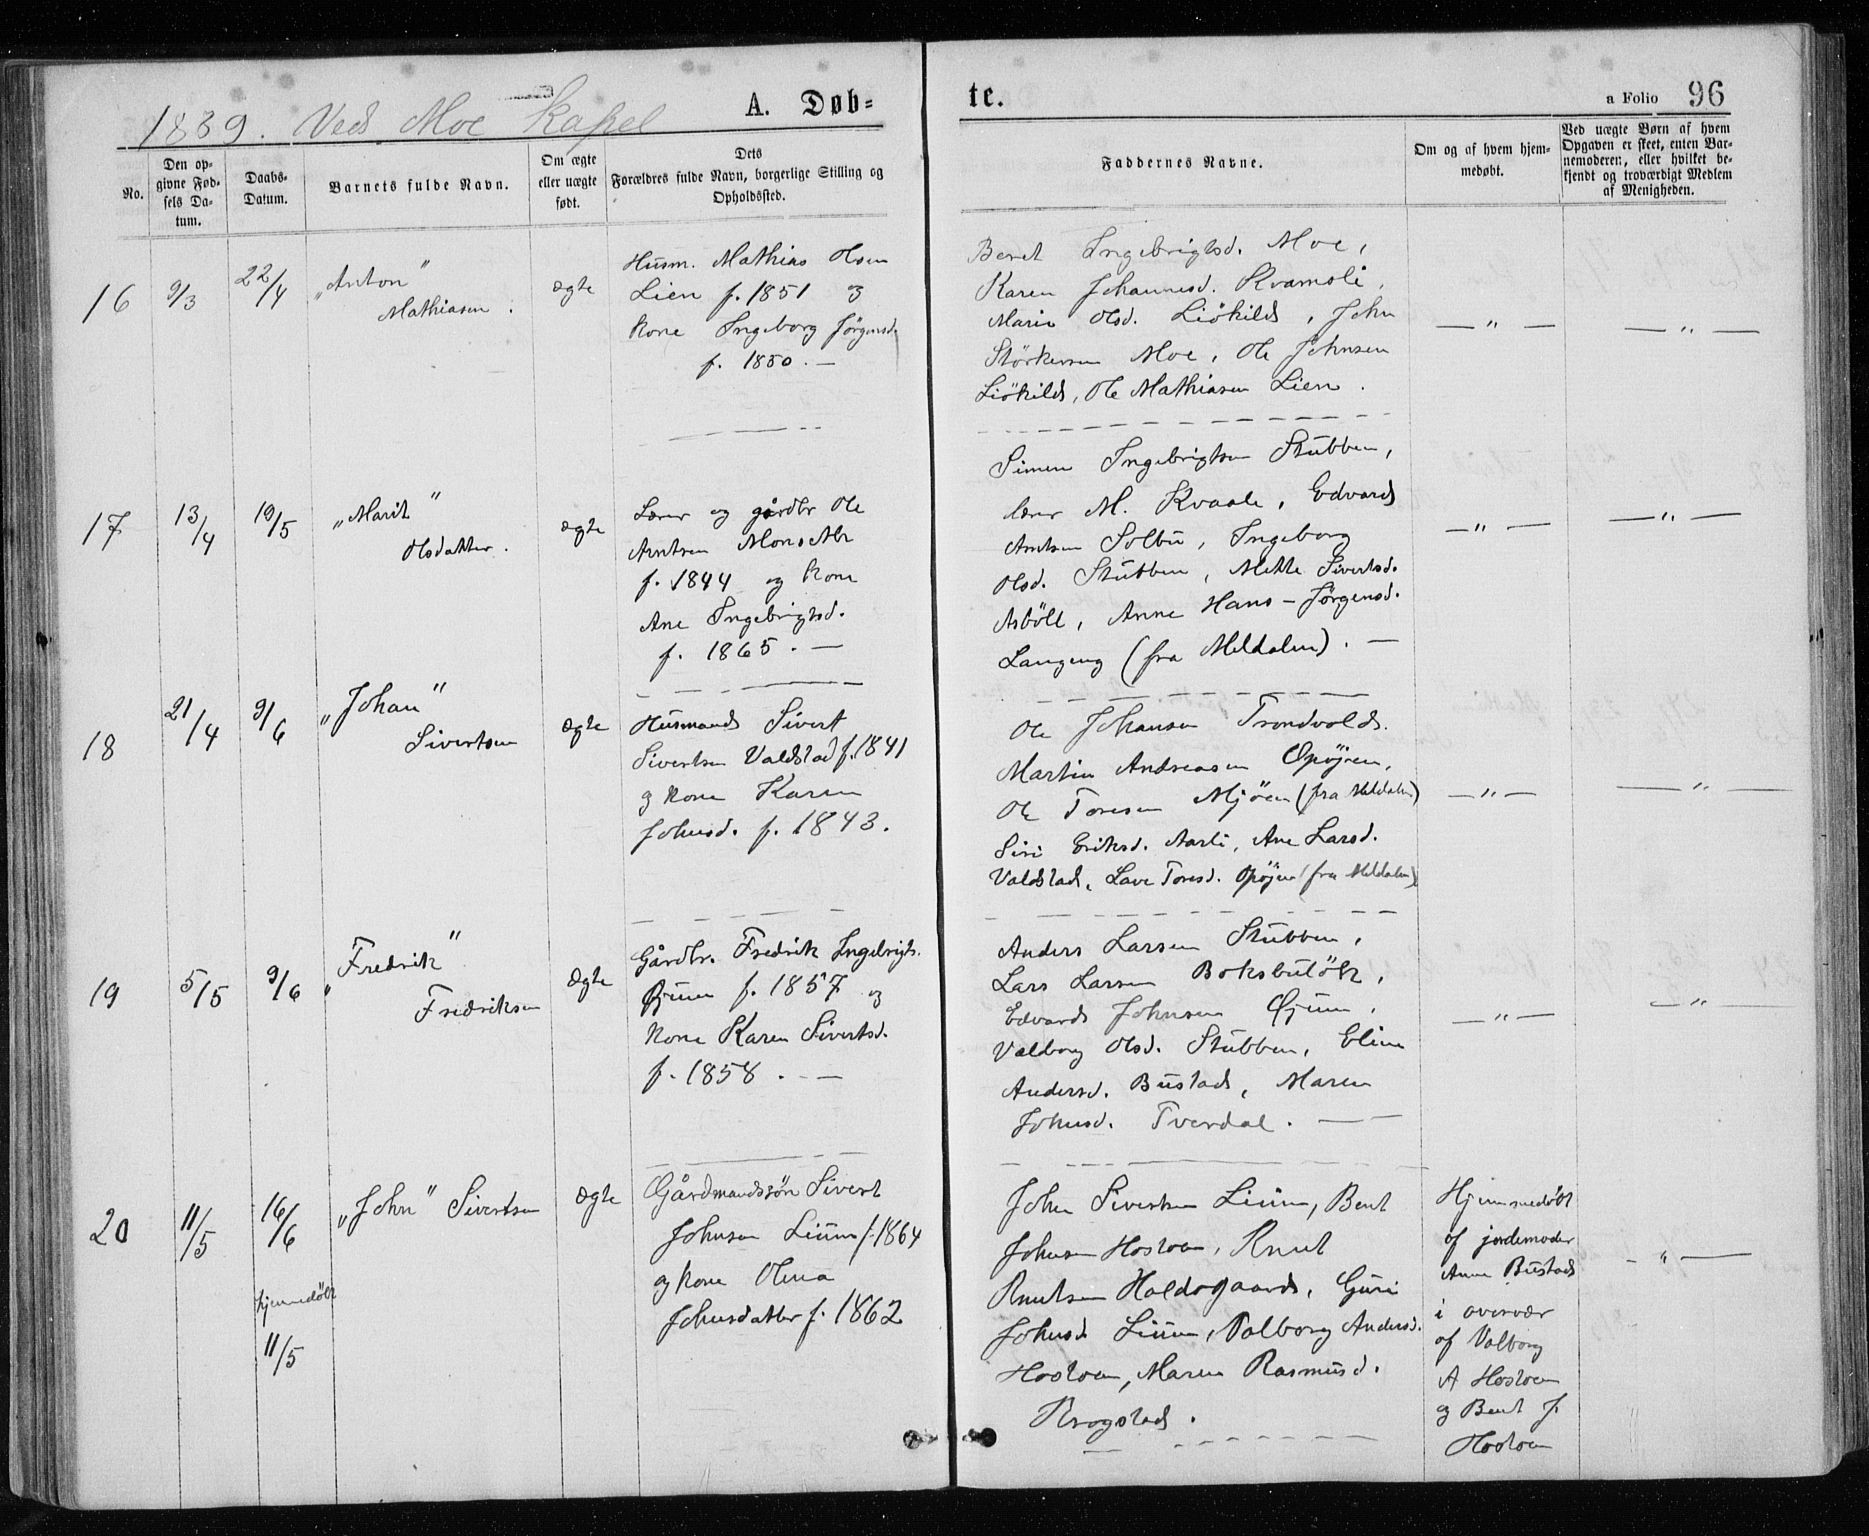 1889. Ved Moe Kapel
A. Døb=
te.
a Folio 96
No.
Den op-
givne Fød-
sels Da-
tum.
Daabs-
Datum.
Barnets fulde Navn.
Om ægte
eller uægte
født.
Dets
Forældres fulde Navn, borgerlige Stilling og
Opholdssted.
Faddernes Navne.
Om og af hvem hjem-
medøbt.
Ved uægte Børn af hvem
Opgaven er skeet, enten Bar-
nemoderen, eller hvilket be-
kjendt og troværdigt Medlem
af Menigheden.
16
9/3
22/4
„Anton"
Mathiasen.
ægte
Husm. Mathias Olsen
Lien f. 1851 og
kone Ingeborg Jørgensd.
f. 1850. —
Beret Ingebrigtsd. Moe,
Karen Johannesd. Kvamsli,
Marie Olsd. Liökild, John
Störkersen Moe, Ole Johnsen
Liökild, Ole Mathiasen Lien.
— " —
— " —
17
13/4
19/5
„Marit"
Olsdatter.
ægte
Lærer og gårdbr Ole
Arntsen
f. 1844 og kone
Ane Ingebrigtsd.
f. 1865. —
Simen Ingebrigtsen Stubben,
lærer M. Kvaale, Edvard
Arntsen Solbu, Ingeborg
Olsd. Stubben, Mette Sivertsd.
Asböll, Anne Hans-Jørgensd.
Langeng (fra Meldalen). —
— " —
— " —
18
21/4
9/6
„Johan"
Sivertsen
ægte
Husmand Sivert
Sivertsen Valdstad f. 1841
og kone Karen
Johnsd. f. 1843.
Ole Johansen Trondvold.
Martin Andreasen Opøjen,
Ole Toresen Mjöen (fra Meldalen)
Siri Eriksd. Aarli, Ane Larsd.
Valdstad, Lave Toresd. Opøjen (fra Meldalen)
— " —
— " —
19
5/5
9/6
„Fredrik"
Fredriksen
ægte
Gårdbr. Fredrik Ingebrigts.
Øjum f. 1857 og
kone Karen Sivertsd.
f. 1858. —
Anders Larsen Stubben,
Lars Larsen
Edvard Johnsen Øjum,
Valborg Olsd. Stubben, Eline
Andersd. Bustad, Maren
Johnsd. Tverdal. —
— " —
— " —
20
11/5
16/6
hjemmedöbt
11/5
„John" Sivertsen
ægte
Gårdmandssön Sivert
Johnsen Lium f. 1864
og kone Olena
Johnsdatter f. 1862
John Sivertsen Lium, Bent
Johnsen Hoston, Knut
Knutsen Haldogaard, Guri
Johnsd. Lium, Valborg Andersd.
Hoston, Maren Rasmusd.
Krogstad.
Hjemmedöbt
af jordemoder
Anne Bustad
i overvær
af Valborg
A Hoston
og Bent J.
Hoston
— " —